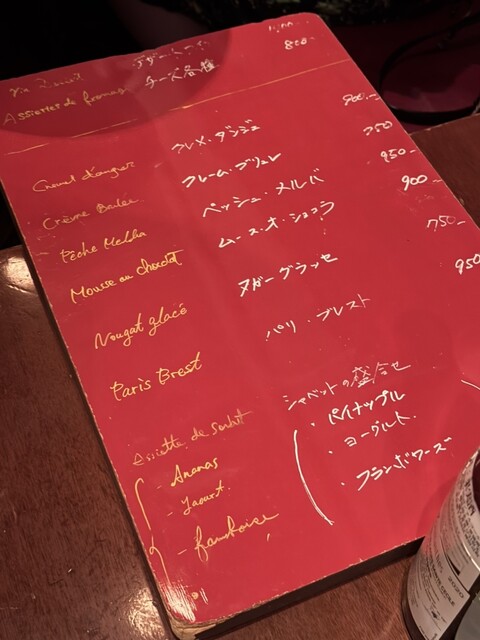 デザートワイン
Assiettes de fromag チーズ各種 800-
クレメ・ダンジュ 900-
Crème Brulée クレーム・ブリュレ 750
Pêche Melba ペッシュ・メルバ 950-
Mousse au chocolat ムース・オ・ショコラ 900-
Nougat glacé ヌガーグラッセ 750-
Paris Brest パリ・ブレスト 950
Assiette de sorbet シャベットの盛合せ
- Ananas ・パイナップル
- Yaourt ・ヨーグルト
- framboise ・フランボワーズ